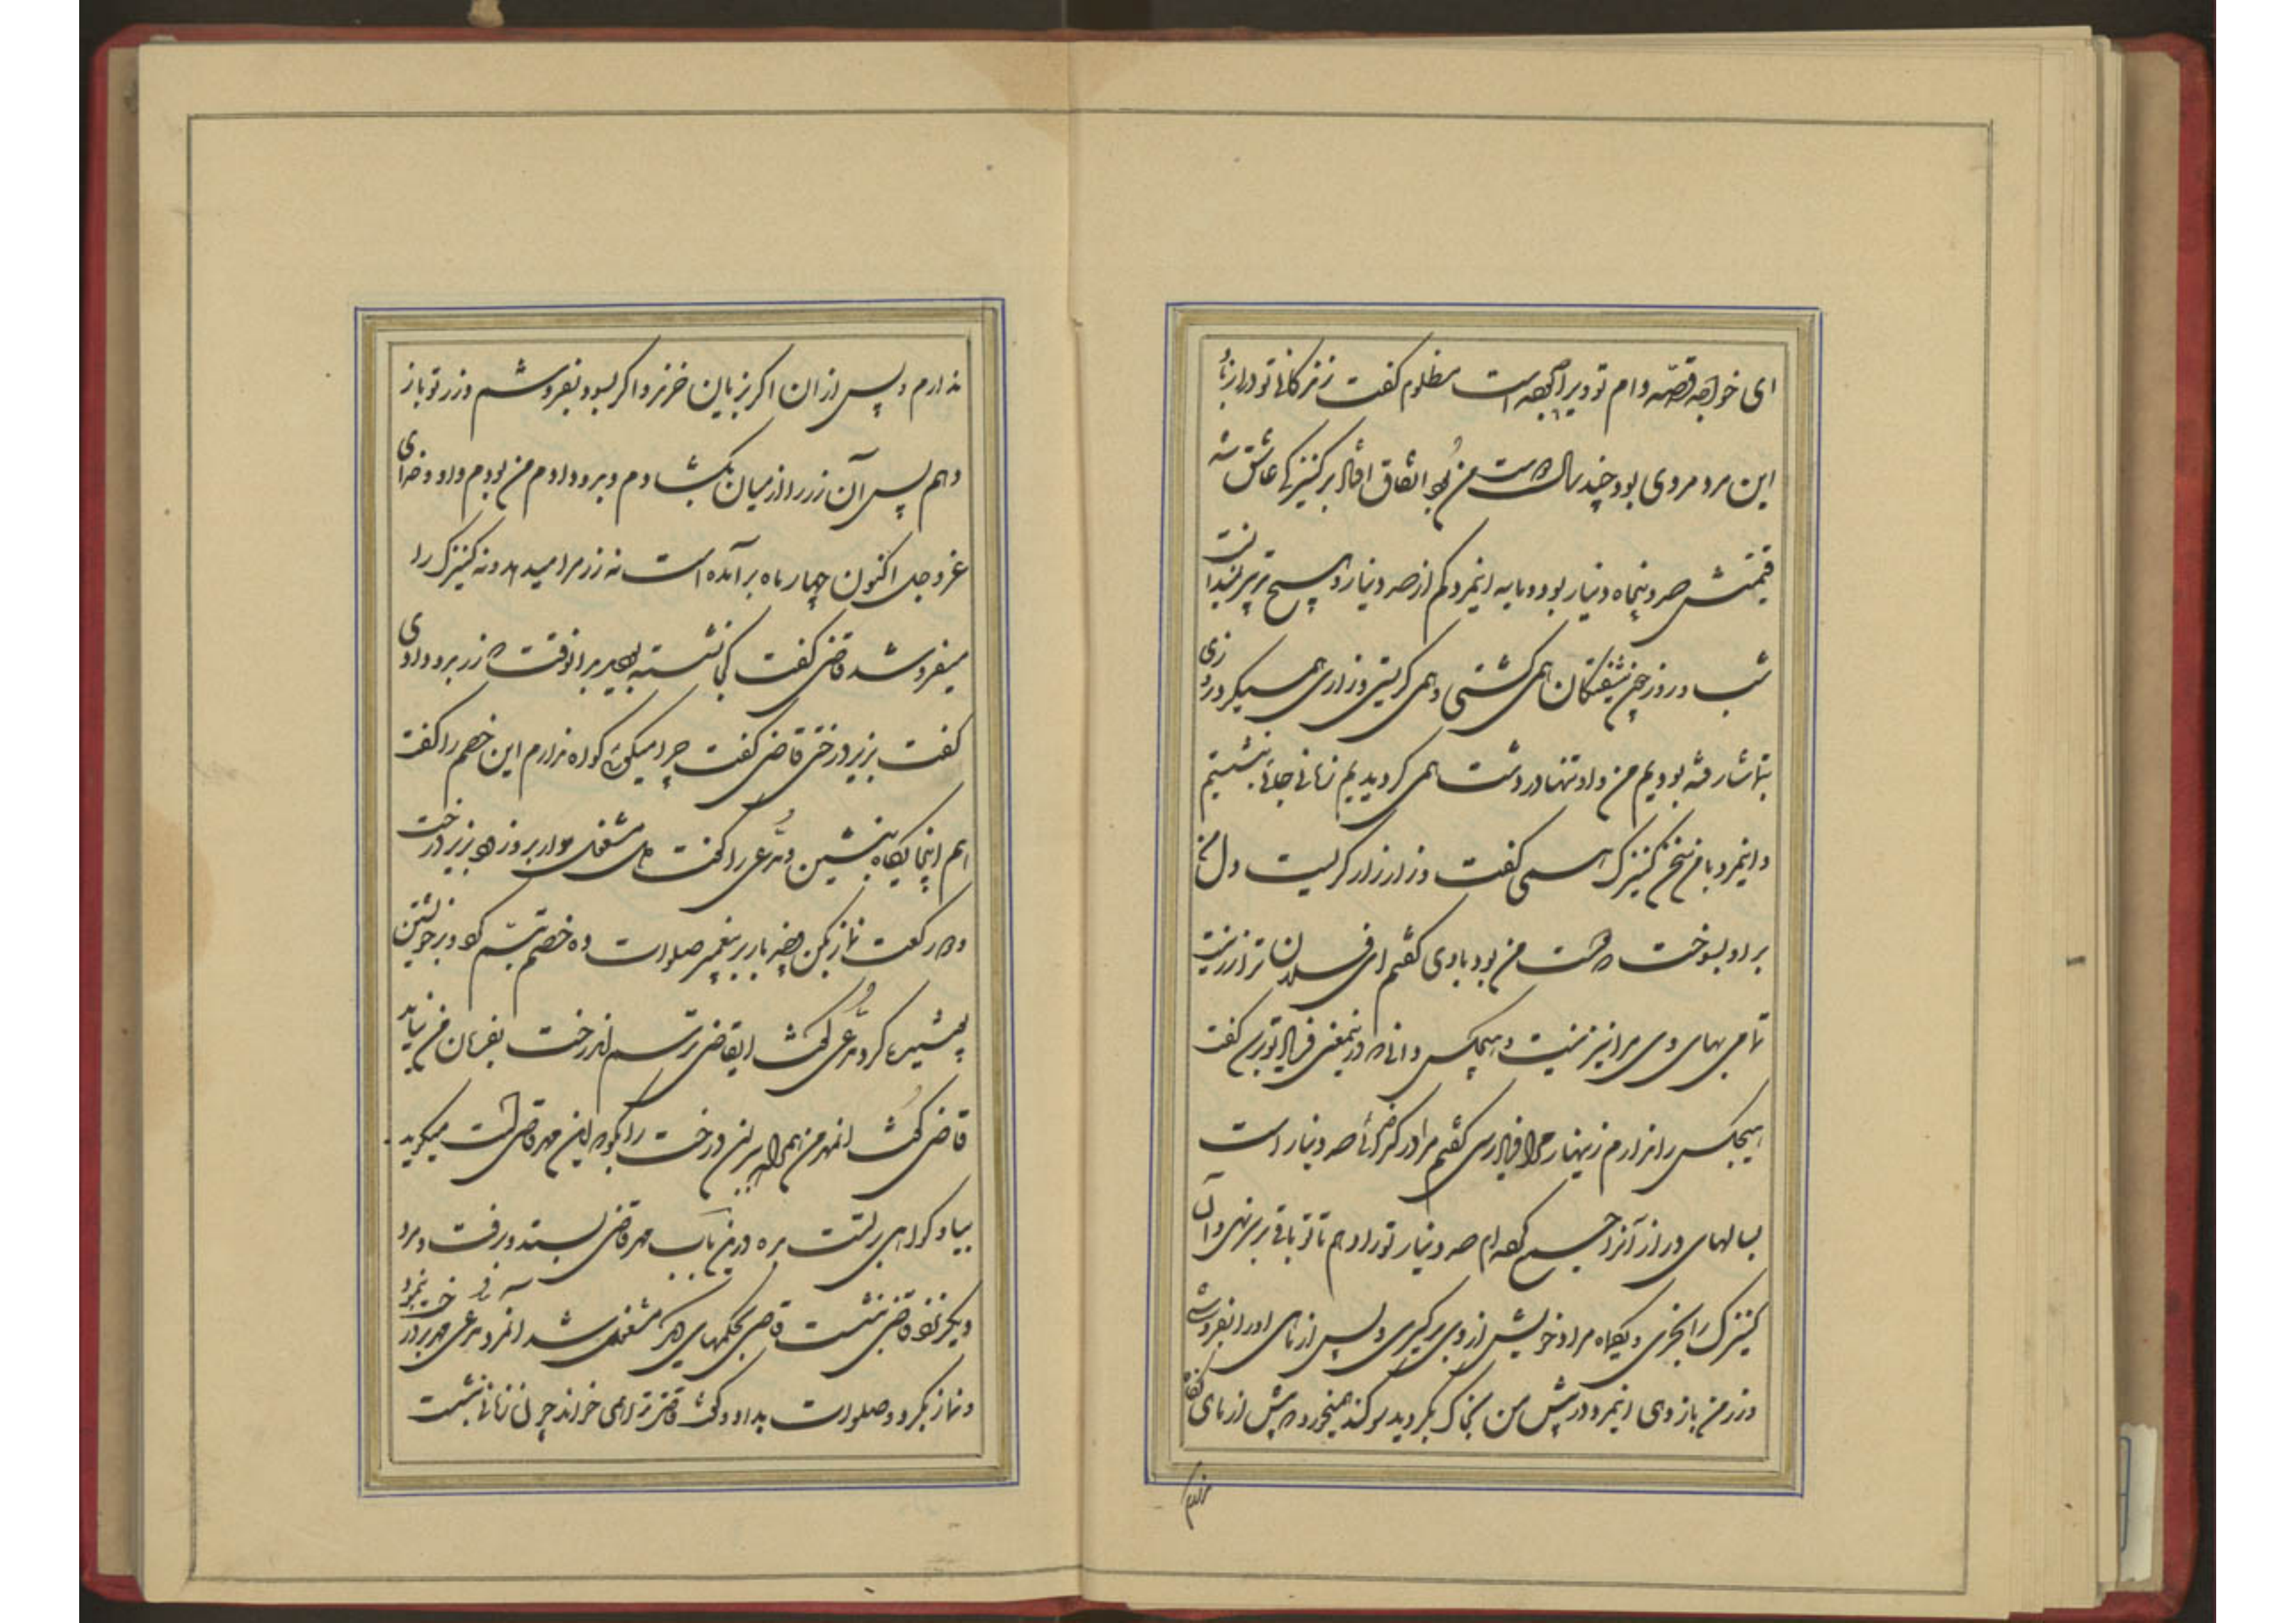 ای خواجه قصّه وام تو ویرا چگونه است مظلوم گفت زندگانی تو دراز باد
این مرد مردی بود چند سال دوست من بود اتفاق افتاد بر کنیزکی عاشق شد
قیمتش صد و پنجاه دینار بود و مایه اینمرد کم از صد دینار و هیچ تدبیر نمیدانست
شب و روز چون شیفتگان همی گشتی و همی گریستی و زاری همیکرد روزی
بتماشا رفته بودیم من و او تنها در دشت همی گردیدیم زمانی جائی بنشستیم
و اینمرد با من سخن کنیزک همی گفت و زار زار گریست دل من
بر او بسوخت که دوست من بود با وی گفتم ای فلان ترا زر نیست
تمامی بهای وی مرا نیز نیست و هیچکس دانی که درینمعنی فریاد تو رسد گفت
هیچکس را ندارم زینهار مرا فریاد رسی گفتم مرا در کل صد دینار است
بسالهای دراز آنرا جمع کرده ام صد دینار تو را دهم تا تو باقی بر سر نهی و آن
کنیزک را بخری و یکماه مراد خویش از وی برگیری و پس از ماهی او را بفروشی
و زر من باز دهی اینمرد در پیش من بخاک بگردید و سوگند میخورد که بیش از ماهی نگاه
ندارم
ندارم و پس از ان اگر بزیان خرند و اگر بسود بفروشم و زر تو باز
دهم پس آن زر را از میان بگشادم و بدو دادم من بودم و او و خدای
عز و جل اکنون چهار ماه برآمده است نه زر مرا میدهد و نه کنیزک را
میفروشد قاضی گفت کجا نشسته بودید در انوقت که زر بدو دادی
گفت بزیر درختی قاضی گفت چرا میگوئی گواه ندارم این خصم را گفت
هم اینجایگاه بنشین و مدّعی را گفت دل مشغول مدار برو زود بزیر درخت
دو رکعت نماز بکن و چند بار بر پیغمبر صلوات ده خصم تبسّم کرد و بر خویشتن
پوشیده کرد مدّعی گفت ایقاضی ترسم اندرخت بفرمان من نیاید
قاضی گفت انمهر من همراه ببر ان درخت را بگو که این مهر قاضی است میگوید
بیا و گواهی راست بده درین باب مهر قاضی بستد و برفت و مرد
دیگر نزد قاضی بنشست قاضی بحکمهای دیگر مشغول شد آنمرد مدّعی مهر بدرخت نمود
و نماز بکرد و صلوات بداد و گفت قاضی ترا می خواند چون زمانی بنشست